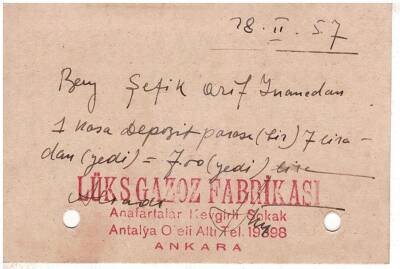 28. II. 57
Bay Şefik Arif İnanedan
1 kasa depozit parası (bir) 7 lira-
dan (yedi) = 7.00 (yedi) lira
LÜKS GAZOZ FABRİKASI
Anafartalar Sokak
Antalya Oteli Altı Tel. 19898
ANKARA